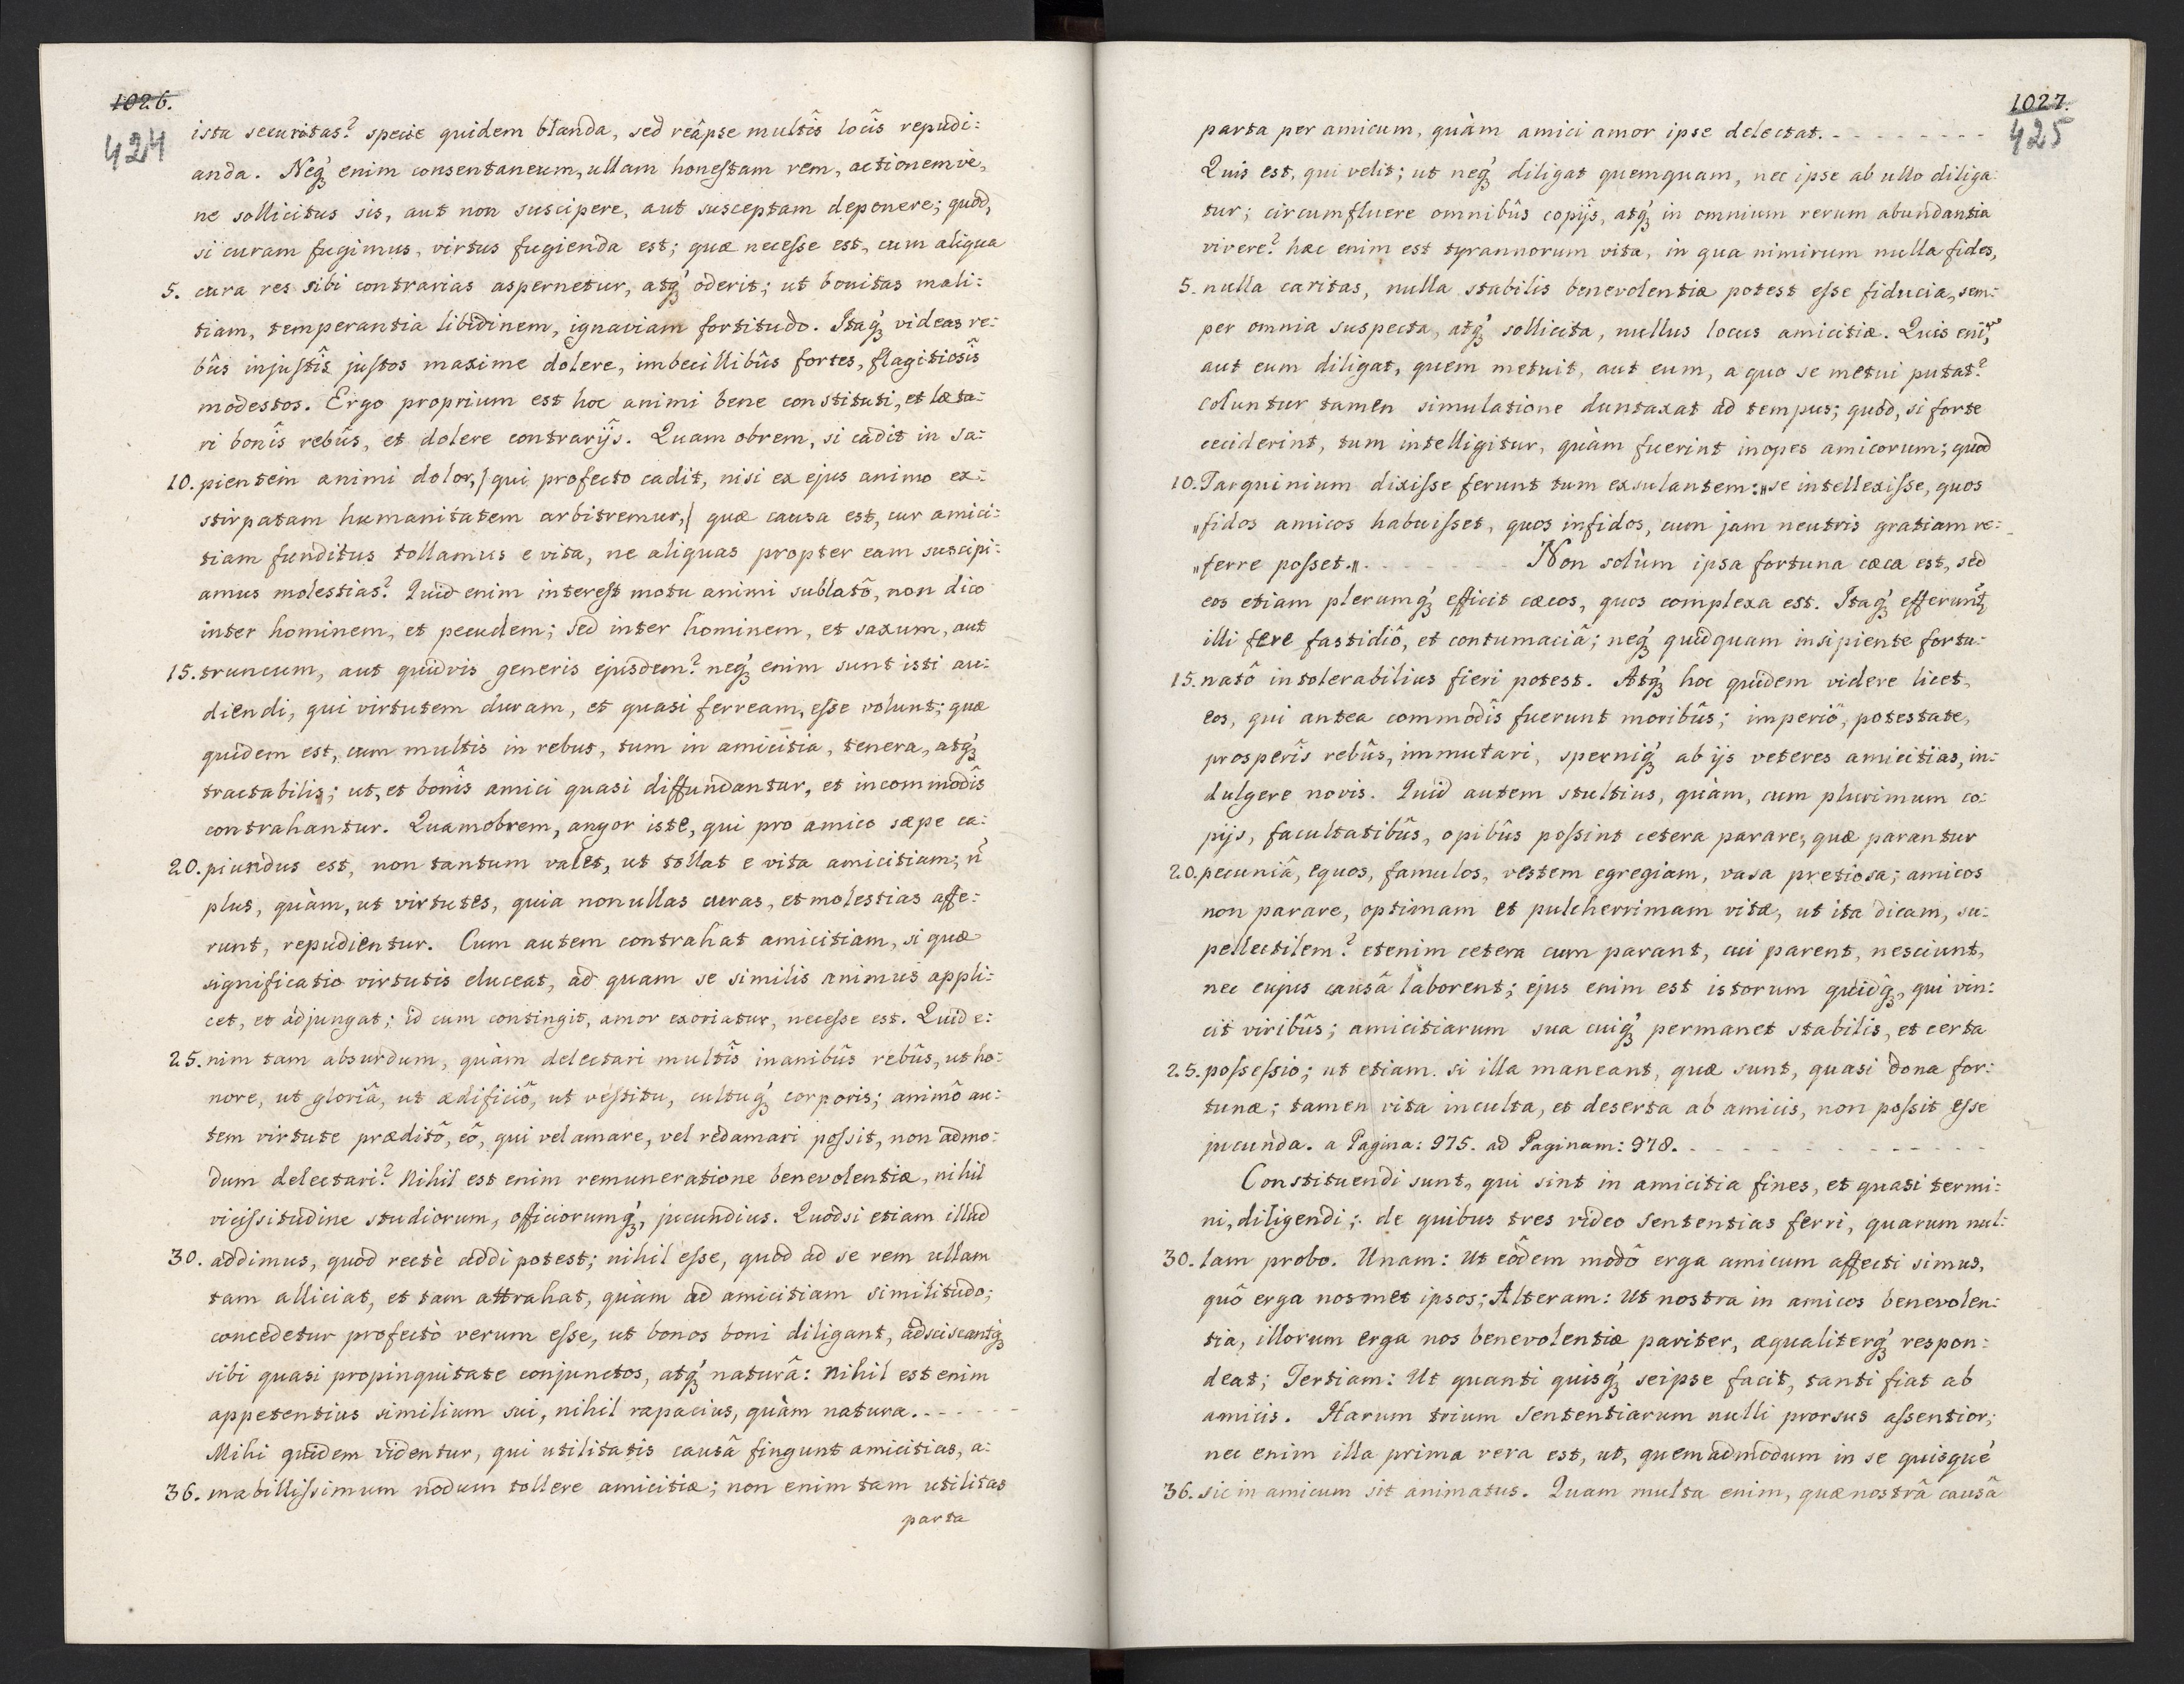 1026.
424
ista securitas? specie quidem blanda, sed reâpse multîs locîs repudi:
anda. Neq́ꝫ enim consentaneum, ullam honestam rem, actionemve,
ne sollicitus sis, aut non suscipere, aut susceptam deponere; quòd,
si curam fugimus, virtus fugienda est; quæ necesse est, cum aliqua
5. cura res sibi contrarias aspernetur, atq́ꝫ oderit; ut bonitas mali:
tiam, temperantia libidinem, ignaviam fortitudo. Itaq́ꝫ videas re:
bûs injustîs justos maxime dolere, imbecillibûs fortes, flagitiosîs
modestos. Ergo proprium est hoc animi bene constituti, et læta:
ri bonîs rebûs, et dolere contrarijs. Quam obrem, si cadit in sa:
10. pientem animi dolor,) qui profecto cadit, nisi ex ejus animo ex:
stirpatam humanitatem arbitremur,) quæ causa est, cur amici:
tiam funditus tollamus e vita, ne aliquas propter eam suscipi:
amus molestias? Quid enim interest motu animi sublatô, non dico
inter hominem, et pecudem; sed inter hominem, et saxum, aut
15. truncum, aut quidvis generis ejusdem? neq́ꝫ enim sunt isti au:
diendi, qui virtutem duram, et quasi ferream, esse volunt; quæ
quidem est, cum multis in rebus, tum in amicitia, tenera, atq́ꝫ
tractabilis; ut, et bonîs amici quasi diffundantur, et incommodîs
contrahantur. Quamobrem, angor iste, qui pro amico sæpe ca:
20. piundus est, non tantum valet, ut tollat e vita amicitiam; ñ
plus, quàm, ut virtutes, quia nonullas curas, et molestias affe:
runt, repudientur. Cum autem contrahat amicitiam, si quæ
significatio virtutis eluceat, ad quam se similis animus appli:
cet, et adjungat; id cum contingit, amor exoriatur, necesse est. Quid e:
25. nim tam absurdum, quàm delectari multîs inanibûs rebûs, ut ho:
nore, ut gloriâ, ut ædificiô, ut vestitu, cultuq́ꝫ corporis; animô au:
tem virtute præditô, eô, qui vel amare, vel redamari possit, non admo:
dum delectari? Nihil est enim remuneratione benevolentiæ, nihil
vicissitudine studiorum, officiorumq́ꝫ, jucundius. Quodsi etiam illud
30. addimus, quod rectè addi potest; nihil esse, quod ad se rem ullam
tam alliciat, et tam attrahat, quàm ad amicitiam similitudo;
concedetur profectò verum esse, ut bonos boni diligant, adsciscantq́ꝫ
sibi quasi propinquitate conjunctos, atq́ꝫ naturâ: Nihil est enim
appetentius similium sui, nihil rapacius, quàm natura. - - - - - -
Mihi quidem videntur, qui utilitatis causâ fingunt amicitias, a:
36. mabillissimum nodum tollere amicitiæ; non enim tam utilitas
parta
1027.
425
parta per amicum, quàm amici amor ipse delectat. - - - - - - - - -
Quis est, qui velit; ut neq́ꝫ diligat quemquam, nec ipse ab ullo diliga:
tur; circumfluere omnibûs copijs, atq́ꝫ in omnium rerum abundantia
vivere? hæc enim est tyrannorum vita, in qua nimirum nulla fides,
5. nulla caritas, nulla stabilis benevolentiæ potest esse fiducia, sem:
per omnia suspecta, atq́ꝫ sollicita, nullus locus amicitiæ. Quis enĩ,
aut eum diligat, quem metuit, aut eum, a quo se metui putat?
Coluntur tamen simulatione duntaxat ad tempus; quòd, si forte
ceciderint, tum intelligitur, quàm fuerint inopes amicorum; quod
10. Tarquinium dixisse ferunt tum exsulantem: „se intellexisse, quos
„fidos amicos habuisset, quos infidos, cum jam neutris gratiam re:
„ferre posset.„ - - - - - - - - Non solùm ipsa fortuna cæca est, sed
eos etiam plerumq́ꝫ efficit cæcos, quos complexa est. Itaq́ꝫ efferunt̃
illi fere fastidiô, et contumaciâ; neq́ꝫ quidquam insipiente fortu:
15. natô intolerabilius fieri potest. Atq́ꝫ hoc quidem videre licet,
eos, qui antea commodîs fuerunt moribûs; imperiô, potestate,
prosperîs rebûs, immutari, sperniq́ꝫ ab ijs veteres amicitias, in:
dulgere novis. Quid autem stultius, quàm, cum plurimum co:
pijs, facultatibûs, opibûs possint cetera parare, quæ parantur
20. pecuniâ, equos, famulos, vestem egregiam, vasa pretiosa; amicos
non parare, optimam et pulcherrimam vitæ, ut ita dicam, su:
pellectilem? etenim cetera cum parant, cui parent, nesciunt,
nec cujus causâ laborent; ejus enim est istorum quidq́ꝫ, qui vin:
cit viribûs; amicitiarum sua cuiq́ꝫ permanet stabilis, et certa
25. possessio; ut etiam. si illa maneant, quæ sunt, quasi dona for:
tunæ; tamen vita inculta, et deserta ab amicis, non possit esse
jucunda. a Pagina: 975. ad Paginam: 978. - - - - - - - - - - - -
Constituendi sunt, qui sint in amicitia fines, et quasi termi:
ni, diligendi; de quibus tres video sententias ferri, quarum nul:
30. lam probo. Unam: Ut eôdem modô erga amicum affecti simus,
quô erga nosmet ipsos; Alteram: Ut nostra in amicos benevolen:
tia, illorum erga nos benevolentiæ pariter, æqualiterq́ꝫ respon:
deat; Tertiam: Ut quanti quisq́ꝫ seipse facit, tanti fiat ab
amicis. Harum trium sententiarum nulli prorsus assentior;
nec enim illa prima vera est, ut, quemadmodum in se quisque
36. sic in amicum sit animatus. Quam multa enim, quæ nostrâ causâ